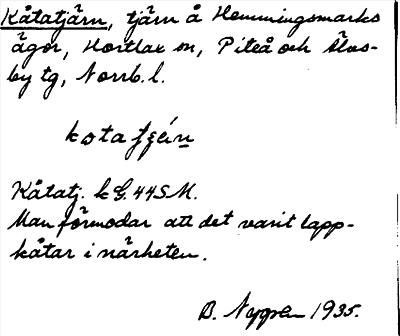 Kåtatjärn, tjärn å Hemmingsmarks
ägor, Hortlax sn, Piteå och Älvs-
by tg, Norrb. l.
Kåtatj. k G. 44 S.M.
Man förmodar att det varit lapp-
kåtar i närheten.
B. Nygren 1935.